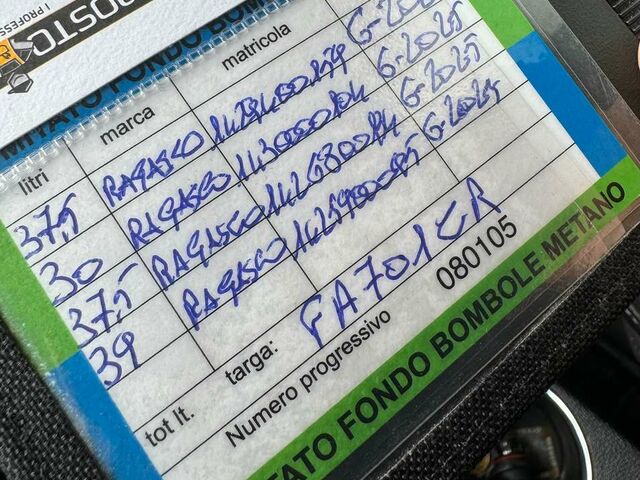 OSTO
I PROFESS
MITATO FONDO BOM
litri marca matricola
37,5 RAGASCO 6-2025
30 RAGASCO 6-2025
37,5 RAGASCO 6-2025
39 RAGASCO 6-2025
tot lt. targa: FA701CR
Numero progressivo 080105
TATO FONDO BOMBOLE METANO